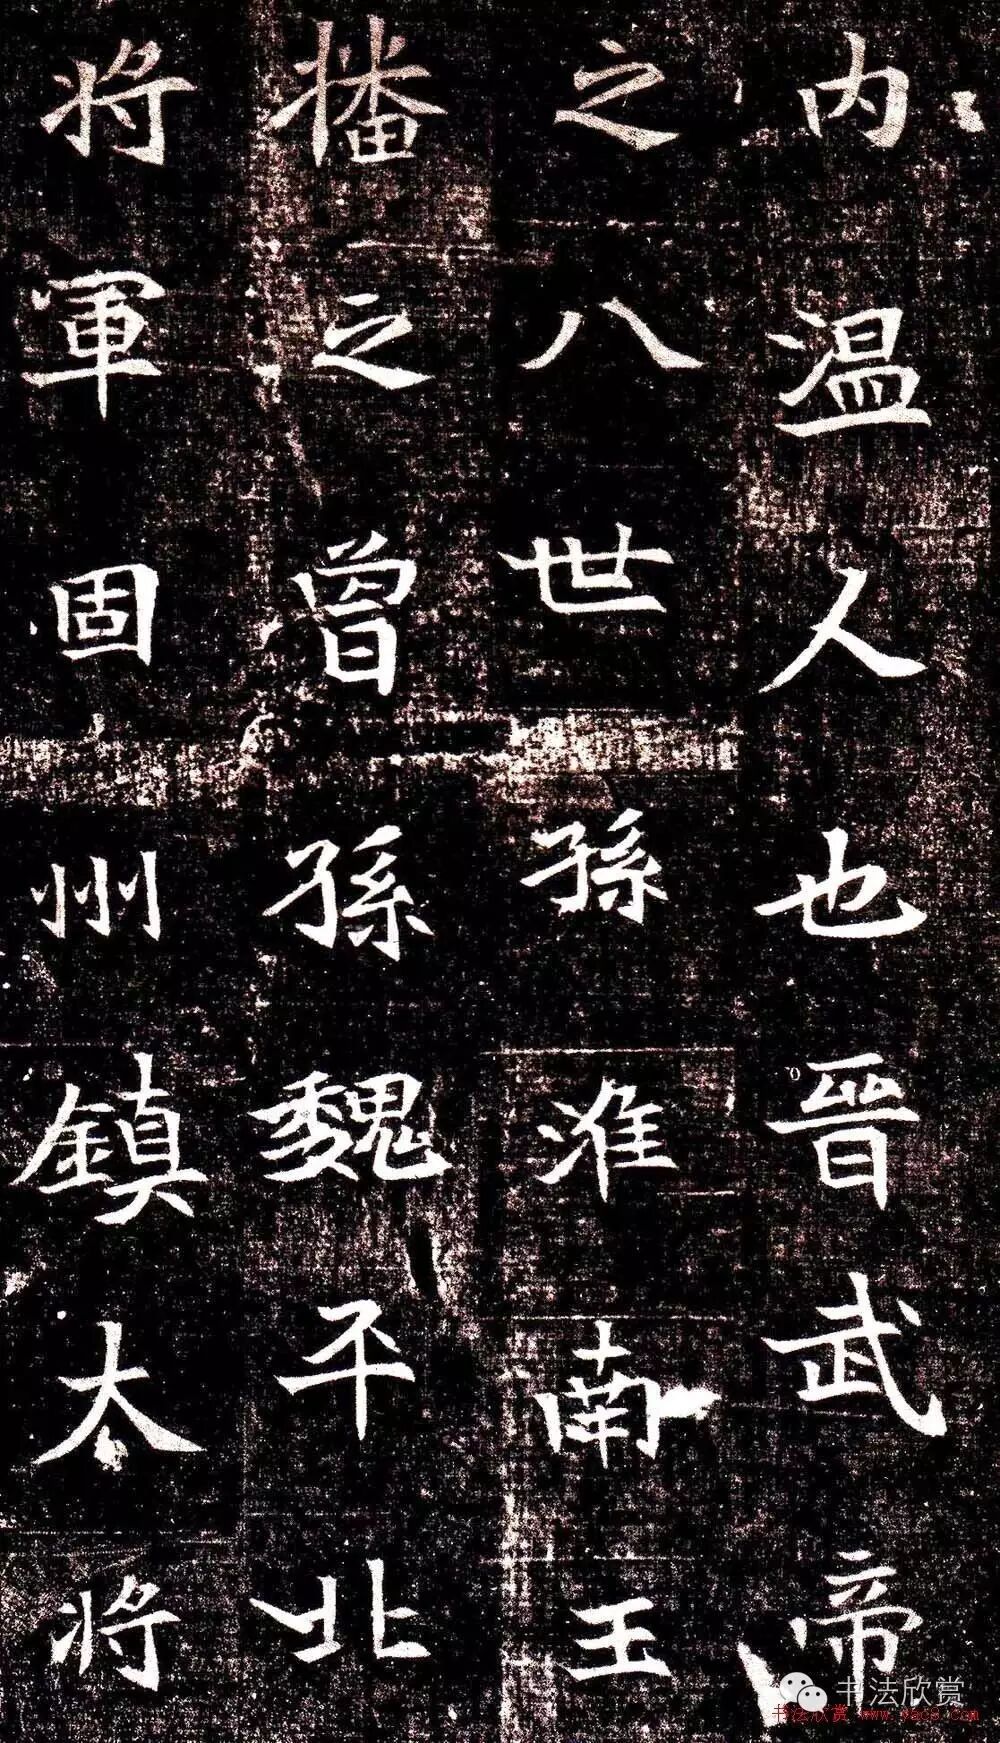 内溫人也晉武帝
之八世孫淮南王
播之曾孫魏平北
將軍固州鎮大將
书法欣赏
书法欣赏 www.yac8.com